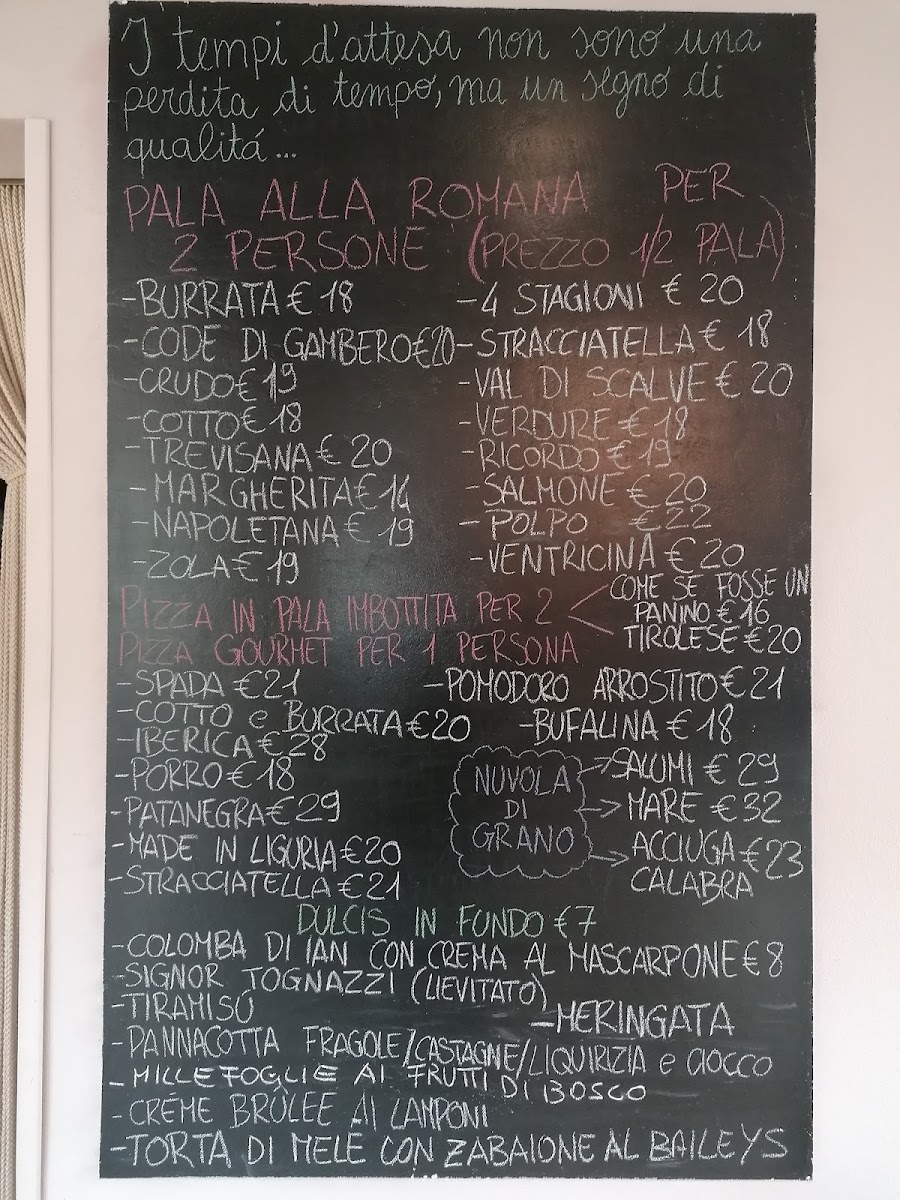 I tempi d'attesa non sono una
perdita di tempo, ma un segno di
qualitá...
PALA ALLA ROMANA PER
2 PERSONE (PREZZO 1/2 PALA)
-BURRATA € 18
-CODE DI GAMBERO €20
-CRUDO € 19
-COTTO € 18
-TREVISANA € 20
-MARGHERITA € 14
-NAPOLETANA € 19
-ZOLA € 19
-4 STAGIONI € 20
-STRACCIATELLA € 18
-VAL DI SCALVE € 20
-VERDURE € 18
-RICORDO € 19
-SALMONE € 20
-POLPO € 22
-VENTRICINA € 20
PIZZA IN PALA IMBOTTITA PER 2
COME SE FOSSE UN
PANINO € 16
TIROLESE € 20
PIZZA GOURMET PER 1 PERSONA
-SPADA € 21
-COTTO e BURRATA € 20
-IBERICA € 28
-PORRO € 18
-PATANEGRA € 29
-MADE IN LIGURIA € 20
-STRACCIATELLA € 21
-POMODORO ARROSTITO € 21
-BUFALINA € 18
NUVOLA
DI
GRANO
→SALUMI € 29
→MARE € 32
→ACCIUGA € 23
CALABRA
DULCIS IN FUNDO € 7
-COLOMBA DI IAN CON CREMA AL MASCARPONE € 8
-SIGNOR TOGNAZZI (LIEVITATO)
-TIRAMISÚ
-MERINGATA
-PANNACOTTA FRAGOLE/CASTAGNE/LIQUIRIZIA e CIOCCO
-MILLEFOGLIE AI FRUTTI DI BOSCO
-CRÉME BRÛLÉE AI LAMPONI
-TORTA DI MELE CON ZABAIONE AL BAILEYS